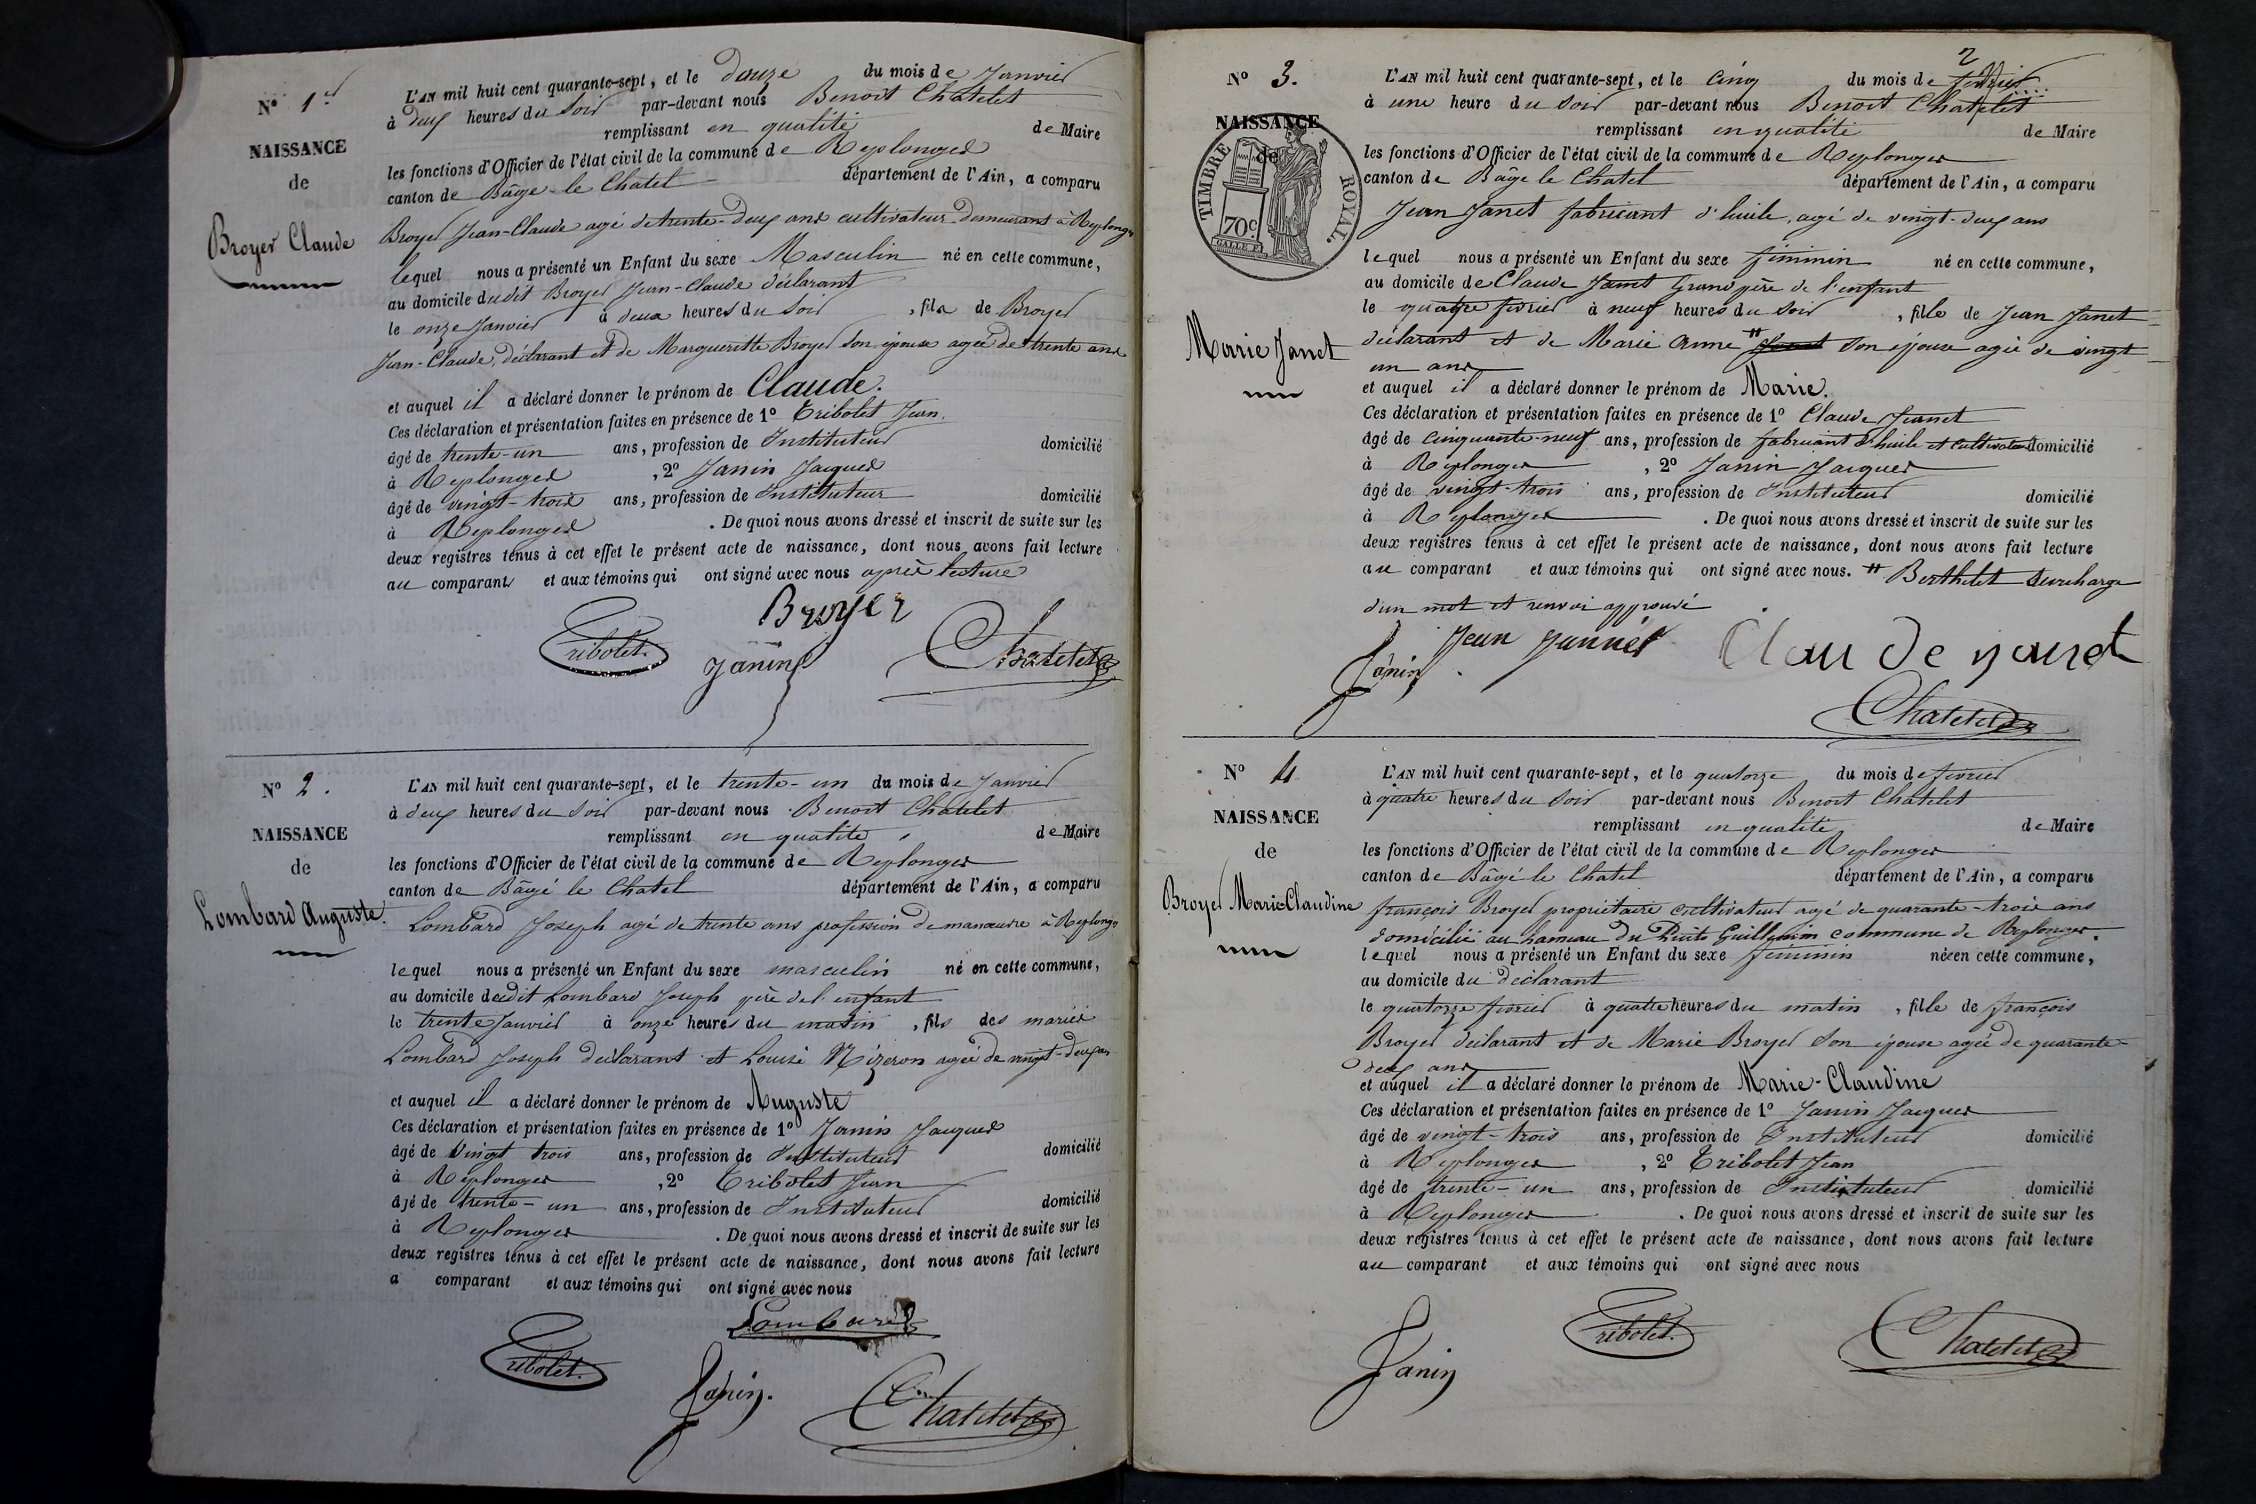 N° 1er
NAISSANCE
de
Broyer Claude
L'AN mil huit cent quarante-sept, et le douze du mois de Janvier
à deux heures du soir par-devant nous Benoit Chatelet
remplissant en qualité de Maire
les fonctions d'Officier de l'état civil de la commune de Replonges
canton de Bâgé-le Chatel département de l'Ain, a comparu
Broyer Jean-Claude agé de trente-deux ans cultivateur demeurant à Replonges
lequel nous a présenté un Enfant du sexe Masculin né en cette commune,
au domicile dudit Broyer Jean-Claude déclarant
le onze Janvier à deux heures du soir, fils de Broyer
Jean-Claude, déclarant et de Margueritte Broyer son épouse agée de trente ans
et auquel il a déclaré donner le prénom de Claude.
Ces déclaration et présentation faites en présence de 1° Tribolet Jean
âgé de trente-un ans, profession de Instituteur domicilié
à Replonges, 2° Janin Jacques
âgé de vingt-trois ans, profession de Instituteur domicilié
à Replonges. De quoi nous avons dressé et inscrit de suite sur les
deux registres tenus à cet effet le présent acte de naissance, dont nous avons fait lecture
au comparant et aux témoins qui ont signé avec nous après lecture
Broyer
Tribolet
Janin
Chatelet
N° 2.
NAISSANCE
de
Lombard Auguste.
L'AN mil huit cent quarante-sept, et le trente-un du mois de Janvier
à deux heures du soir par-devant nous Benoit Chatelet
remplissant en qualité de Maire
les fonctions d'Officier de l'état civil de la commune de Replonges
canton de Bâgé le Chatel département de l'Ain, a comparu
Lombard Joseph agé de trente ans profession de manœuvre à Replonges
lequel nous a présenté un Enfant du sexe masculin né en cette commune,
au domicile dudit Lombard Joseph père de l'enfant
le trente Janvier à onze heures du matin, fils des mariés
Lombard Joseph déclarant et Louise Mizeron agée de vingt-deux ans
et auquel il a déclaré donner le prénom de Auguste
Ces déclaration et présentation faites en présence de 1° Janin Jacques
âgé de vingt trois ans, profession de Instituteur domicilié
à Replonges, 2° Tribolet Jean
âgé de trente-un ans, profession de Instituteur domicilié
à Replonges. De quoi nous avons dressé et inscrit de suite sur les
deux registres tenus à cet effet le présent acte de naissance, dont nous avons fait lecture
a comparant et aux témoins qui ont signé avec nous
Lombard
Tribolet.
Janin.
Chatelet
2
N° 3.
NAISSANCE
de
TIMBRE ROYAL.
70c.
Marie Janet
L'AN mil huit cent quarante-sept, et le cinq du mois de février
à une heure du soir par-devant nous Benoit Chatelet
remplissant en qualité de Maire
les fonctions d'Officier de l'état civil de la commune de Replonges
canton de Bâgé le Chatel département de l'Ain, a comparu
Jean Janet fabricant d'huile, agé de vingt-deux ans
lequel nous a présenté un Enfant du sexe féminin né en cette commune,
au domicile de Claude Janet Grand père de l'enfant
le quatre février à neuf heures du soir, fille de Jean Janet
déclarant et de Marie Anne # Janet son épouse agée de vingt
un ans
et auquel il a déclaré donner le prénom de Marie.
Ces déclaration et présentation faites en présence de 1° Claude Jeanet
âgé de cinquante-neuf ans, profession de fabricant d'huile et cultivateur domicilié
à Replonges, 2° Janin Jacques
âgé de vingt-trois ans, profession de Instituteur domicilié
à Replonges. De quoi nous avons dressé et inscrit de suite sur les
deux registres tenus à cet effet le présent acte de naissance, dont nous avons fait lecture
au comparant et aux témoins qui ont signé avec nous. # Berthelet surcharge
d'un mot et renvoi approuvé
Janin
Jean Jannet
Claude
Chatelet
N° 4
NAISSANCE
de
Broyer Marie-Claudine
L'AN mil huit cent quarante-sept, et le quatorze du mois de février
à quatre heures du soir par-devant nous Benoit Chatelet
remplissant en qualité de Maire
les fonctions d'Officier de l'état civil de la commune de Replonges
canton de Bâgé le Chatel département de l'Ain, a comparu
françois Broyer propriétaire cultivateur agé de quarante-trois ans
domicilié au hameau du Puits Guillemin commune de Replonges.
lequel nous a présenté un Enfant du sexe féminin née en cette commune,
au domicile du déclarant
le quatorze février à quatre heures du matin, fille de françois
Broyer déclarant et de Marie Broyer son épouse agée de quarante-
deux ans
et auquel il a déclaré donner le prénom de Marie-Claudine
Ces déclaration et présentation faites en présence de 1° Janin Jacques
âgé de vingt-trois ans, profession de Instituteur domicilié
à Replonges, 2° Tribolet Jean
âgé de trente-un ans, profession de Instituteur domicilié
à Replonges. De quoi nous avons dressé et inscrit de suite sur les
deux registres tenus à cet effet le présent acte de naissance, dont nous avons fait lecture
au comparant et aux témoins qui ont signé avec nous
Tribolet.
Janin
Chatelet